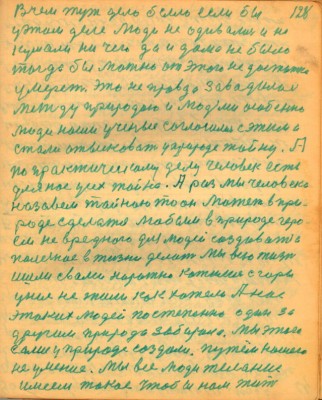 В чем тут дело было если бы 128
у этом деле люди не одивалис и не
кушали ни чего да и дома не было
тогда бы можно от этого не достатка
умереть. Это не правда завадилас
между природою и людми особенно
люди наши ученые согласилис с этим и
стали отвисковат у природе тайну. А
по практическому делу человек есть
для нас усех тайна. А раз мы человека
назовем тайною то он может в при
роде сделатся любыми в природе геро
ем не вредного для людей создавать а
полезное в жизни делит мы всю жизн
шли свами
уние не жили как хотели А нас
этаких людей постепенно один за
другим природа забирала. Мы этого
сами у природе создали. путём нашего
не умение. Мы все люди желание
имеем такое чтобы нам жит